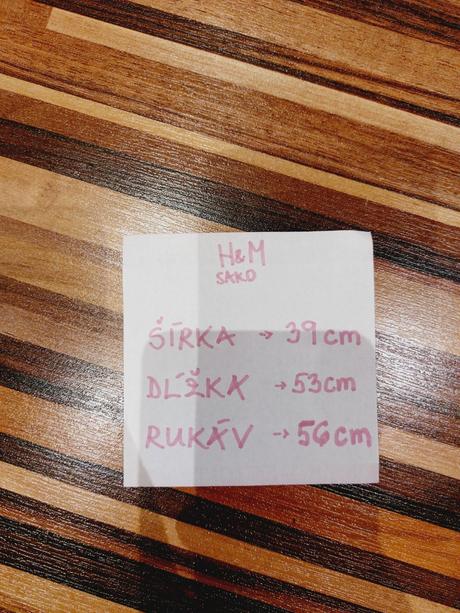 H&M
SAKO
ŠÍRKA → 39cm
DĹŽKA → 53cm
RUKÁV → 56cm